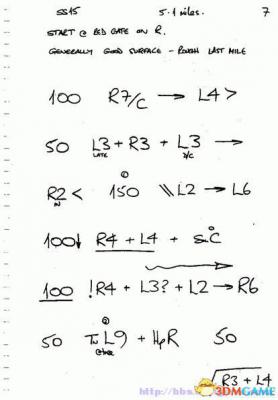 SS15 5.1 miles. 7
START @ RED GATE ON R.
GENERALLY GOOD SURFACE - ROUGH LAST MILE
100 R7/C → L4 >
50 L3 + R3 + L3 →
LATE /C
R2 < 150 \\ L2 → L6
IN
100↓ R4 + L4 +
100 !R4 + L3? + L2 → R6
50 L9 + HpR 50
R3 + L4
http://bbs.
3DMGAME